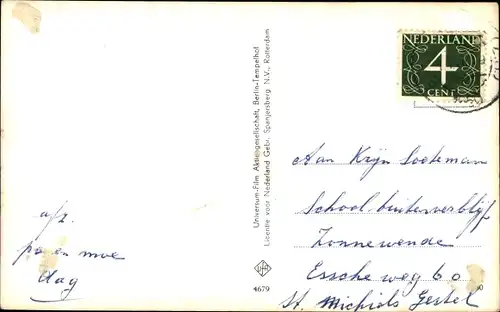 NEDERLAND
4
CENT
Universum-Film Aktiengesellschaft, Berlin-Tempelhof
Licentie voor Nederland Gebr. Spanjersberg N.V., Rotterdam
Aan Krijn Soeteman
School-buitenverblijf
Zonnewende
Essche weg 60
St. Michiels Gestel
afz.
pa en moe
dag
Ufa
4679